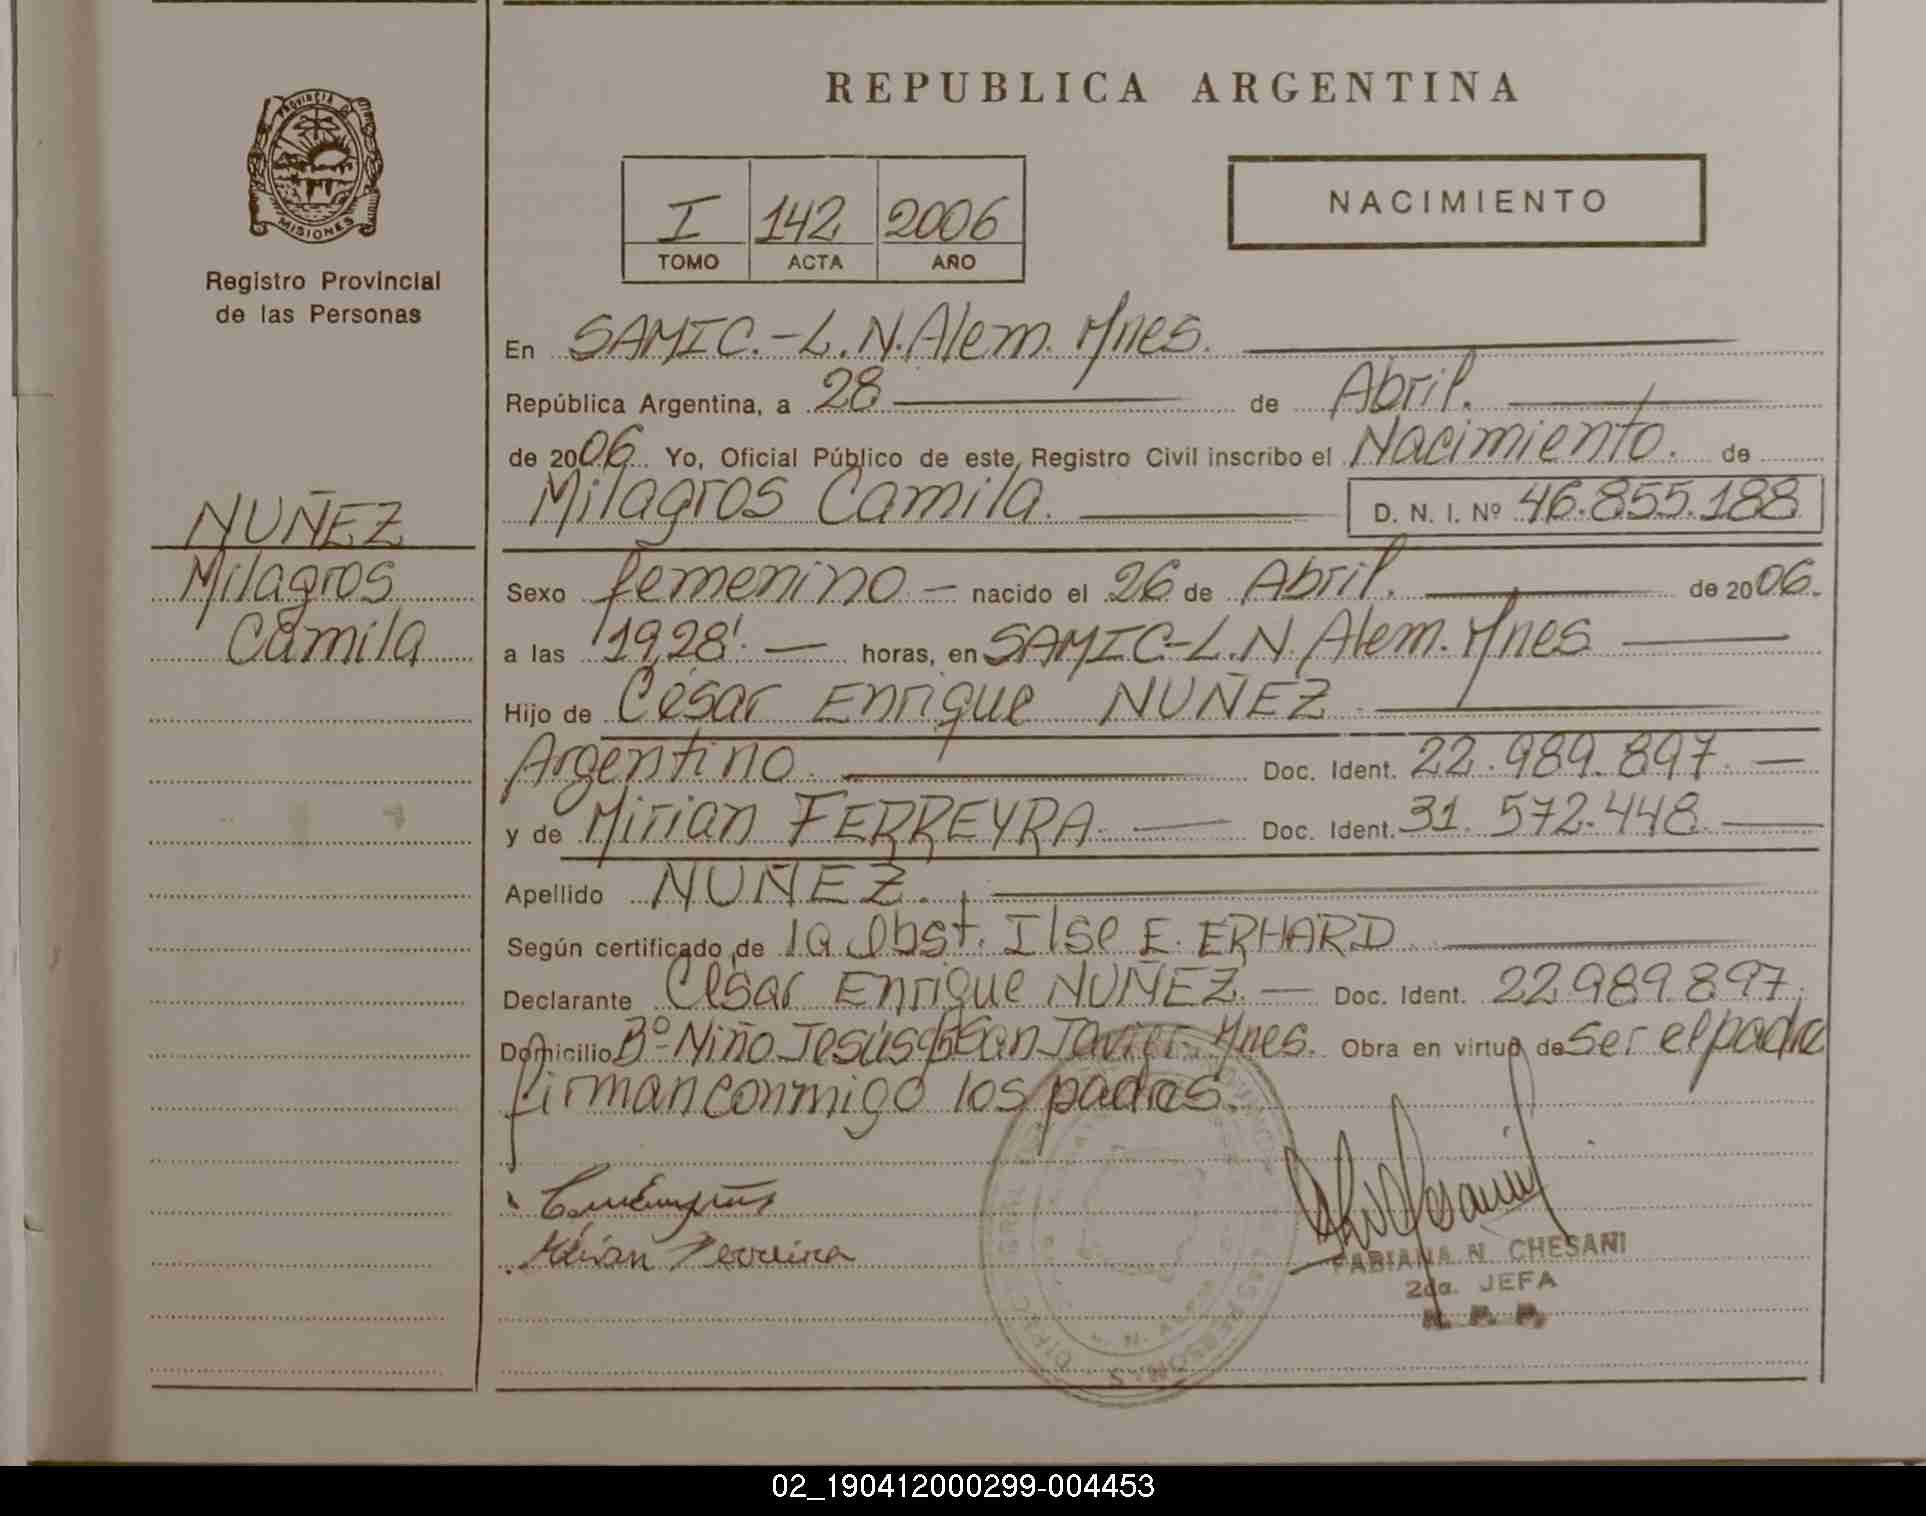 REPUBLICA ARGENTINA
PROVINCIA DE
MISIONES
Registro Provincial
de las Personas
I 142 2006
TOMO ACTA AÑO
NACIMIENTO
En SAMIC.-L.N.Alem. Mnes.
República Argentina, a 28 de Abril.
de 2006. Yo, Oficial Público de este Registro Civil inscribo el Nacimiento. de
Milagros Camila. D. N. I. Nº 46.855.188
NUÑEZ
Milagros
Camila
Sexo femenino - nacido el 26 de Abril. de 2006.
a las 19,28'. - horas, en SAMIC-L.N. Alem. Mnes
Hijo de César Enrique NUÑEZ
Argentino. Doc. Ident. 22.989.897. -
y de Mirian FERREYRA. - Doc. Ident. 31.572.448.
Apellido NUÑEZ.
Según certificado de la Obst. Ilse E. ERHARD.
Declarante César Enrique NUÑEZ. - Doc. Ident. 22989897.
Domicilio Bº Niño Jesús San Javier. Mnes. Obra en virtud de ser el padre
firman conmigo los padres.
FABIANA N. CHESANI
2da. JEFA
R. P. P.
02_190412000299-004453